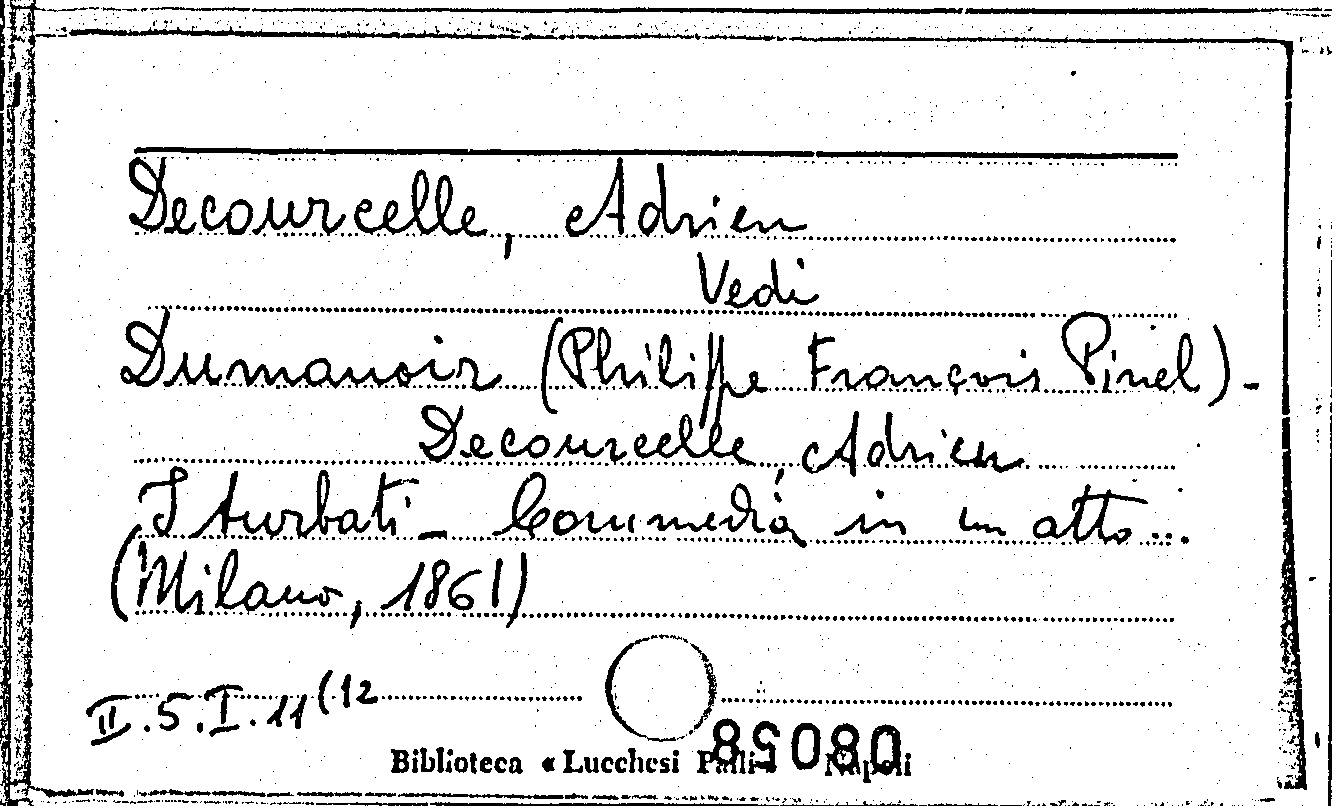 Decourcelle, Adrien
Vedi
Dumanoir (Philippe François Pinel) -
Decourcelle, Adrien
I turbati - Commedia in un atto...
(Milano, 1861)
II.5.I.11(12
Biblioteca « Lucchesi Palli » Napoli